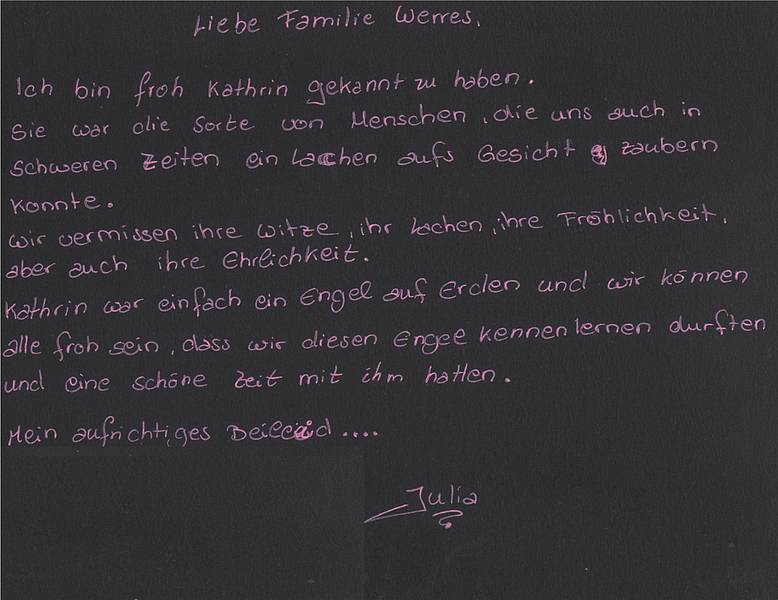 Liebe Familie Werres,
Ich bin froh Kathrin gekannt zu haben.
Sie war die Sorte von Menschen, die uns auch in
schweren Zeiten ein Lachen aufs Gesicht zaubern
konnte.
Wir vermissen ihre Witze, ihr Lachen, ihre Fröhlichkeit,
aber auch ihre Ehrlichkeit.
Kathrin war einfach ein Engel auf Erden und wir können
alle froh sein, dass wir diesen Engel kennenlernen durften
und eine schöne Zeit mit ihm hatten.
Mein aufrichtiges Beileid....
Julia